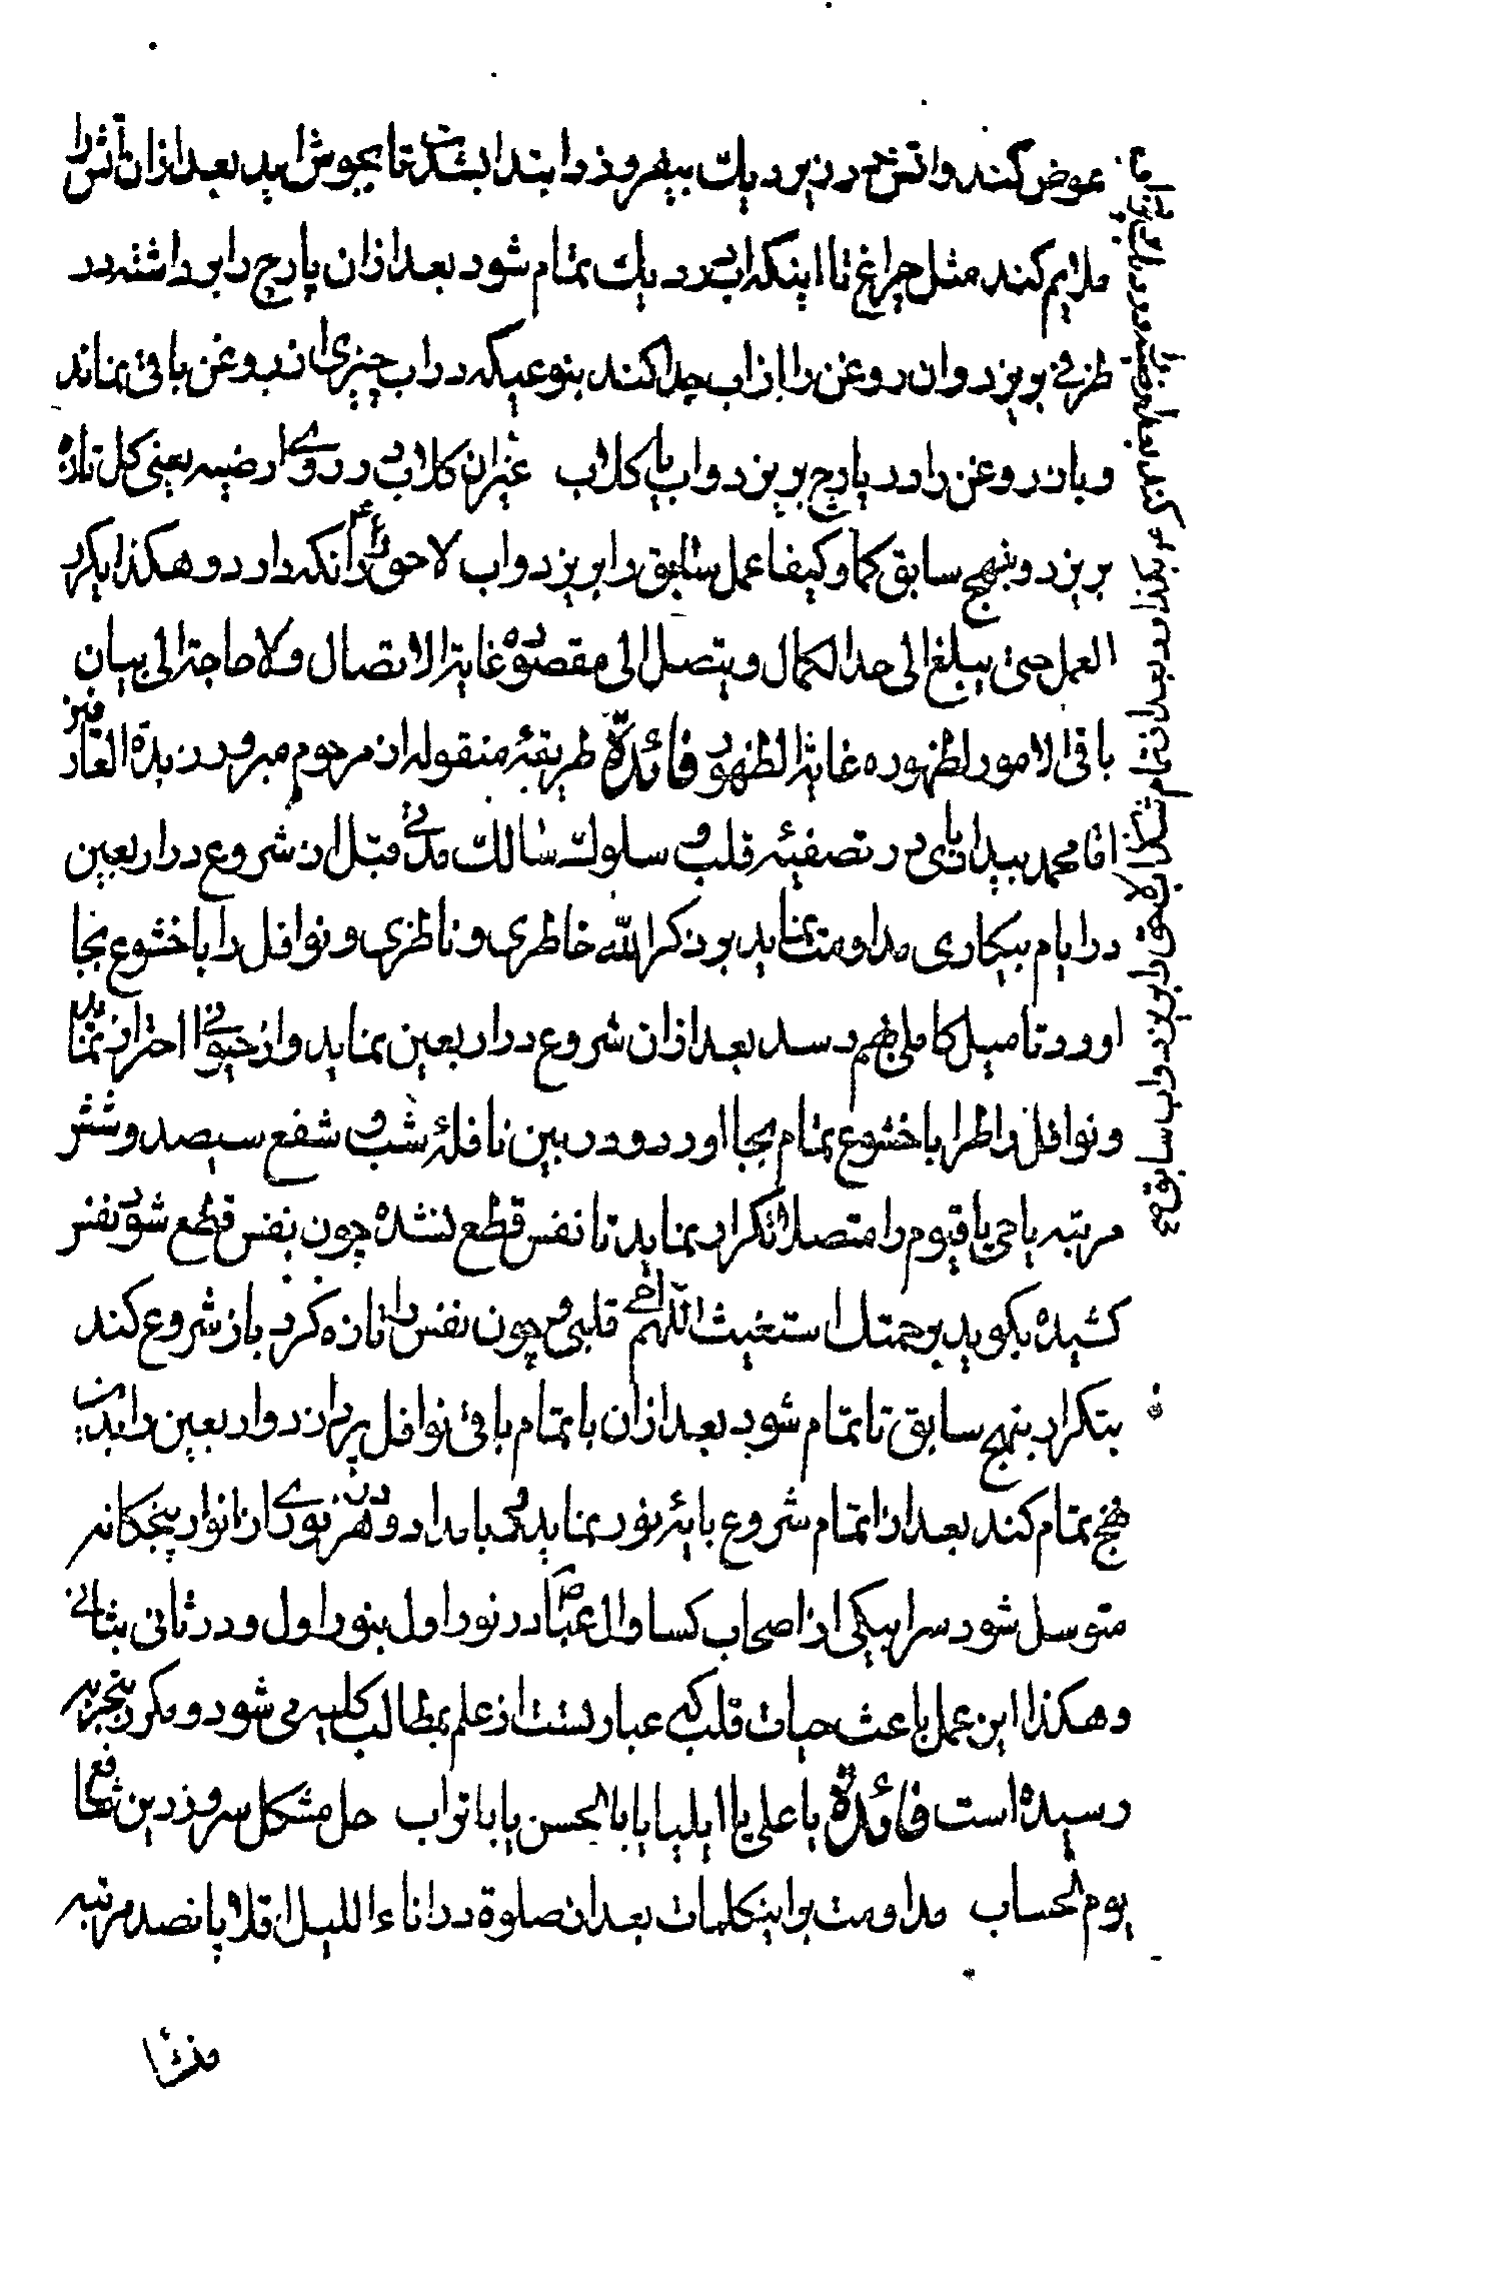 عوض کنند و اتش در زیر دیك بیفروزد ابتدا بشدت تا بجوش اید بعد از ان اتش را
ملایم کنند مثل چراغ تا اینکه اب در دیك تمام شود بعد از ان پارچ را برداشته در
ظرفی بریزد و ان روغن را از اب جدا کنند بنوعیکه در اب چیزی از روغن باقی نماند
و باز روغن را در پارچ بریزد و اب یا کلاب غیر ان کلاب در روی ارضیه یعنی کل تازه
بریزد و بنهج سابق کما و کیفا عمل سابق را بریزد و اب لاحق را نکه دارد و هکذا یکرر
العمل حتی یبلغ الی حد الکمال و یتصل الی مقصوده غایة الاتصال و لا حاجة الی بیان
باقی الامور لظهوره غایة الظهور فائدة طریقهٔ منقوله از مرحوم مبرور زبدة العارفین
اقا محمد بیدابادی در تصفیهٔ قلب و سلوك سالك مدتی قبل از شروع در اربعین
در ایام بیکاری مداومت نماید بر ذکر الله خاطری و ناظری و نوافل را با خشوع بجا
اورد تا میل کاملی بهم رسد بعد از ان شروع در اربعین نماید و از حیوانی احتراز نماید
و نوافل را طرا با خشوع تمام بجا اورد و در بین نافلهٔ شب و شفع سیصد و شش
مرتبه یا حی یا قیوم را متصلا تکرار نماید تا نفس قطع نشده چون نفس قطع شود نفس
کشیده بکوید برحمتك استغیث اللهم احی قلبی و چون نفس را تازه کرد باز شروع کند
بتکرار بنهج سابق تا تمام شود بعد از ان باتمام باقی نوافل پردازد و اربعین را بدین
نهج تمام کند بعد از اتمام شروع بایهٔ نور نماید در بامداد و در هر نوری از انوار پنجکانه
متوسل شود سرا بیکی از اصحاب کسا و ال عبا در نور اول بنور اول و در ثانی بثانی
و هکذا این عمل باعث حیات قلب که عبارتست از علم بمطالب کلیه می شود و مکرر بتجربه
رسیده است فائدة یا علی یا ایلیا یا با الحسن یا با تراب حل مشکل سرور دین شافع
یوم الحساب مداومت بر اینکلمات بعد از صلوة در اناء اللیل اقلا پانصد مرتبه